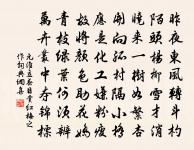 昨夜東風轉斗杓
陌頭楊柳雪才消
曉來一樹如繁杏
開向孤村隔小橋
應是化工嫌粉瘦
故將顏色助花嬌
青枝綠葉何須辨
萬卉叢中奪錦標
元淮立春日賞紅梅之
作詞典網